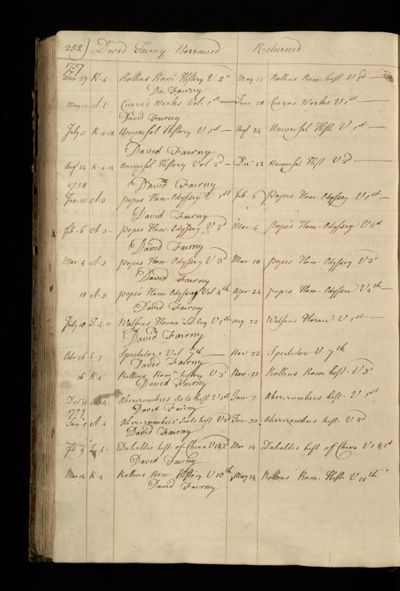 252) David Fairny Borrowed Returned
1757
K.4 Rollins Rom: History V 2d May 12 Rollins Rom. hist. V 2d
Da. Fairny
May 12 A.1 Works Vol. 1st June 28 Works V 1st
David Fairny
July 2 K.4.14 Universal History V 1st Augt 24 Universal Hist. V 1st
David Fairny
Augt 24 K.4.14 Universal History Vol 2d Decr 22 Universal Hist V 2d
1758 David Fairny
A.3 popes Hom. Odyssey V 1st Feb. 6 popes Hom. Odyssey V 1st
David Fairny
Feb. 6 A.3 popes Hom. Odyssey V 2d Mar. 4 popes Hom. Odyssey V 2d
David Fairny
Mar. 4 A.3 popes Hom. Odyssey V 3d Mar 18 popes Hom. Odyssey V 3d
David Fairny
18 A.3 popes Hom. Odyssey Vol 4th Apr 24 popes Hom. Odyssey V 4th
David Fairny
July 10 Watsons Horace V 1st aug 22 Watsons Horace V 1st
David Fairny
16 Spectator Vol 7th Nov 22 Spectator V 7th
David Fairny
16 K.4 Rollins Rom history V 3d Nov. 22 Rollins Rom hist. V 3d
David Fairny
Dec 11 Abercrombies Scots hist V 1st Jan. 5 Abercrombies hist. V 1st
David Fairny
Jan. 5 Abercrombies Scots hist V 2d Jan. 30 Abercrombies hist. V 2d
David Fairny
Feb 3 Duhaldes hist. of China V 1 & 2d Mar 14 Duhaldes hist of China V 1 & 2d
David Fairny
Mar 14 K.4 Rollins Rom. History V 10th May 14 Rollins Rom. Hist. V 10th
David Fairny